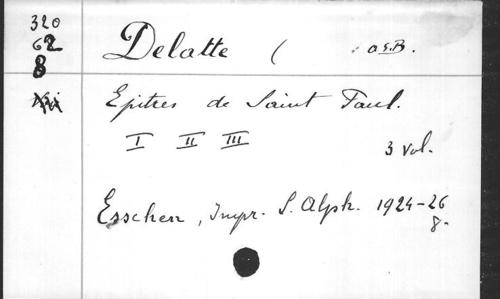 320
62
8
Delatte ( O.S.B.
Epitres de Saint Paul.
I II III
3 vol.
Esschen, Impr. S. Alph. 1924-26
8.